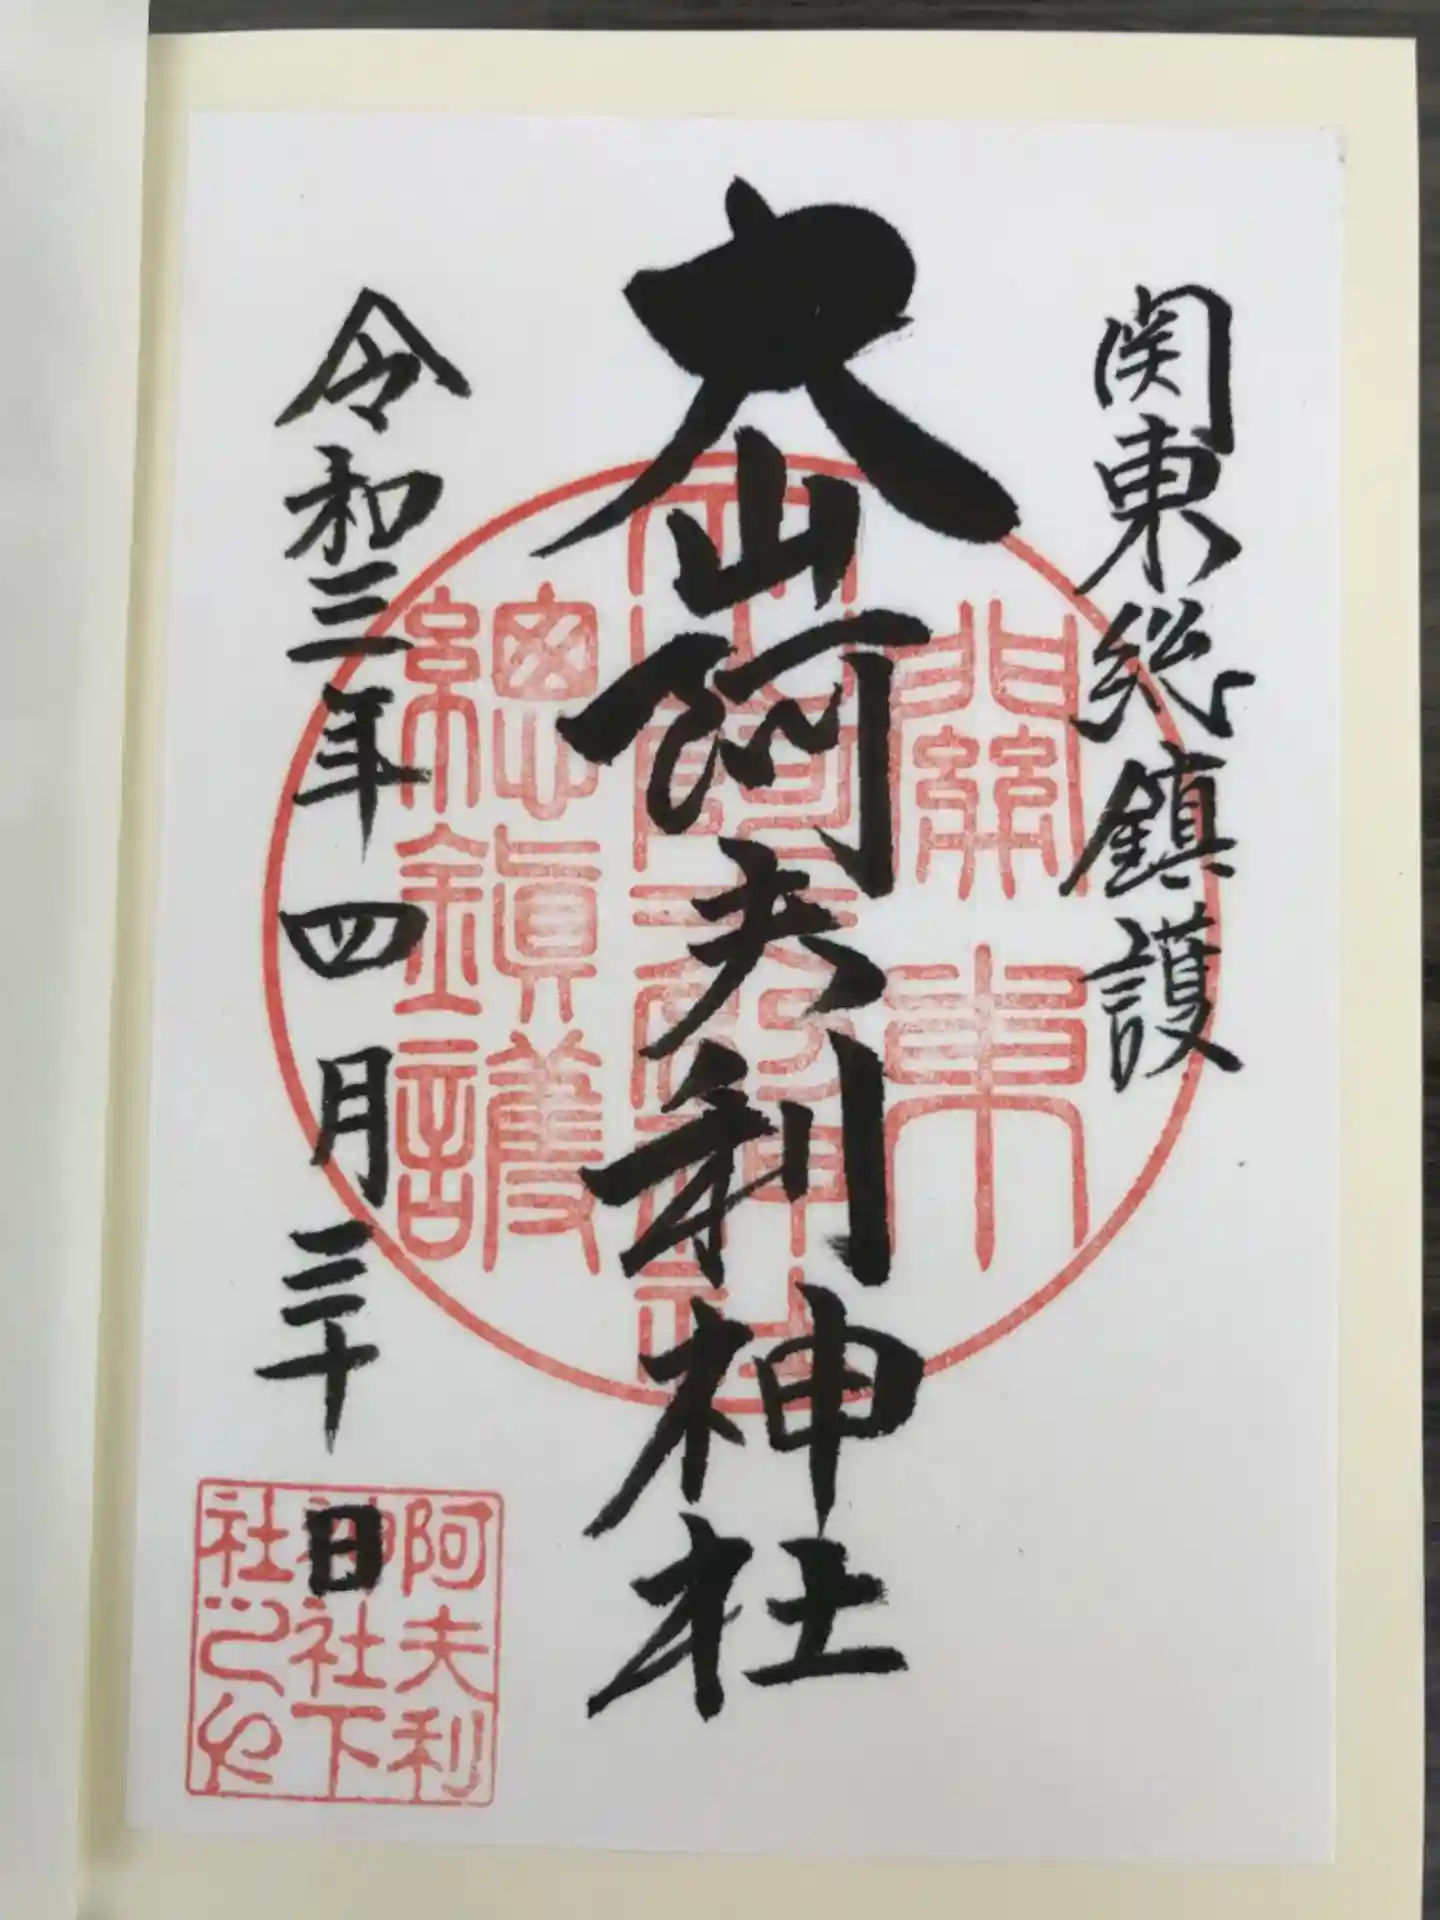 関東総鎮護
大山阿夫利神社
令和三年四月三十日
關東
總鎮護
阿夫利
神社下
社之印